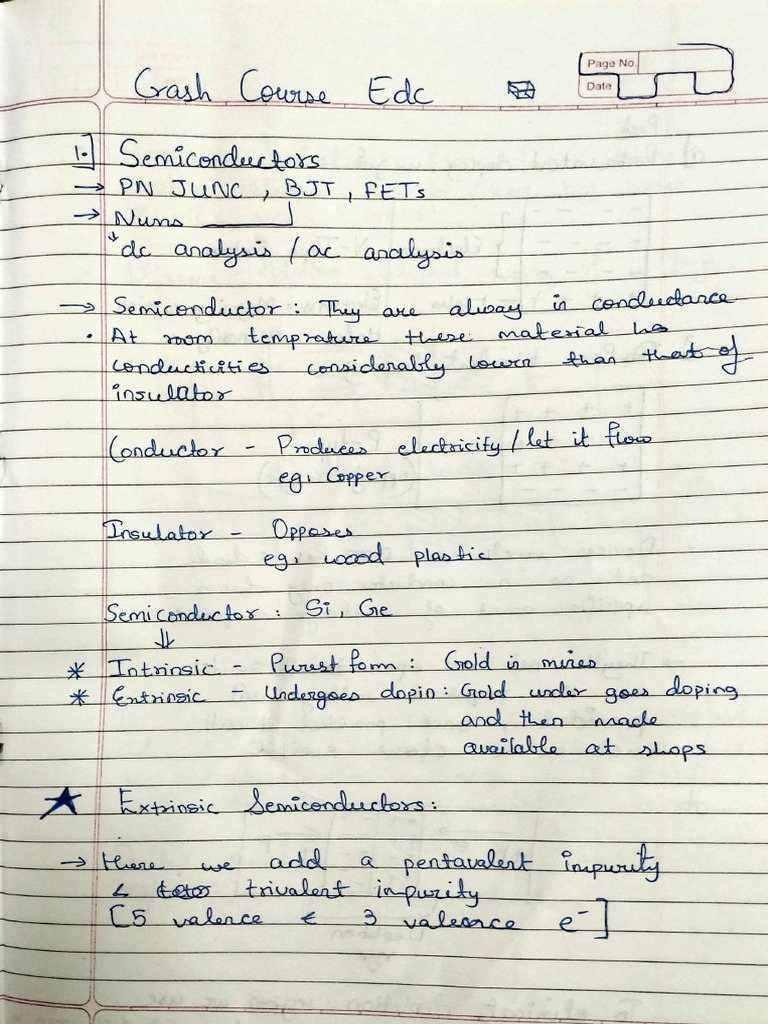 Crash Course Edc
Page No.
Date
1.] Semiconductors
→ PN JUNC, BJT, FETs
→ Nums
dc analysis / ac analysis
→ Semiconductor : They are alway in conductance
• At room temprature these material has
conducticities considerably lower than that of
insulator
Conductor - Produces electricity / let it flow
eg, Copper
Insulator - Opposes
eg, wood plastic
Semiconductor : Si, Ge
⇓
* Intrinsic - Purest form : Gold in mines
* Extrinsic - Undergoes dopin : Gold under goes doping
and then made
available at shops
★ Extrinsic Semiconductors :
→ Here we add a pentavalent impurity
& trivalent impurity
[5 valence & 3 valence e⁻]